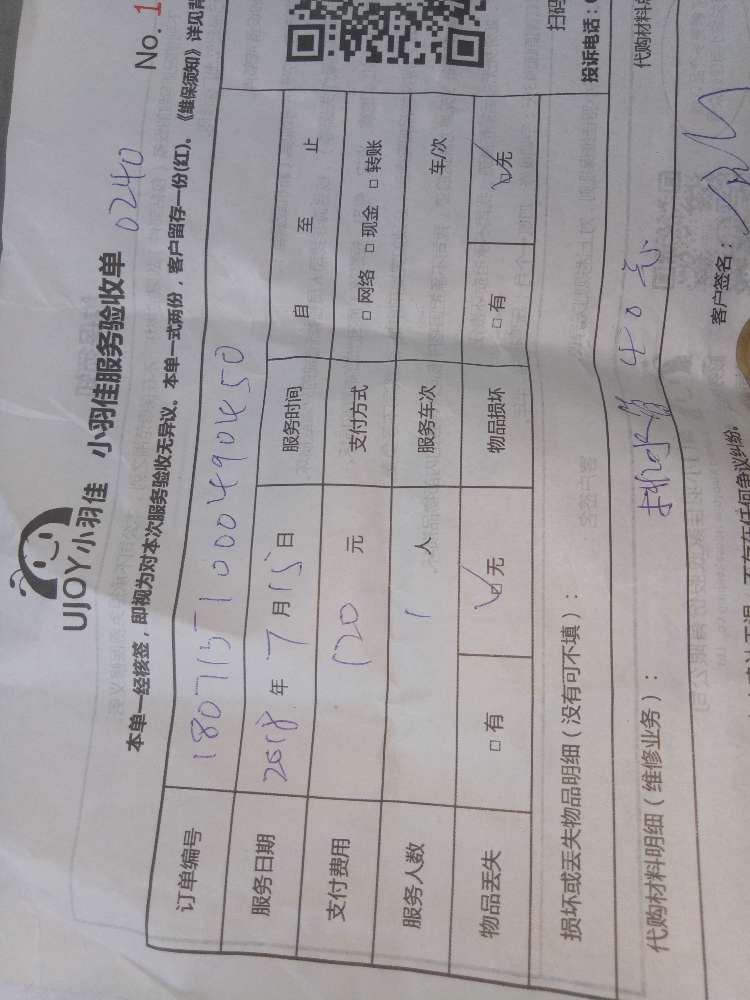 UJOY小羽佳 小羽佳服务验收单 0240
No.1
本单一经核签，即视为对本次服务验收无异议。本单一式两份，客户留存一份(红)。《维保须知》详见背
订单编号 18071571000490450
服务日期 2018年7月15日 服务时间 自 至 止
支付费用 120元 支付方式 □网络 □现金 □转账
服务人数 1人 服务车次 车/次
物品丢失 □有 ☑无 物品损坏 □有 ☑无
损坏或丢失物品明细（没有可不填）：
代购材料明细（维修业务）： 排水管 40元
扫码
投诉电话：
代购材料
客户签名：
不存在任何争议纠纷.